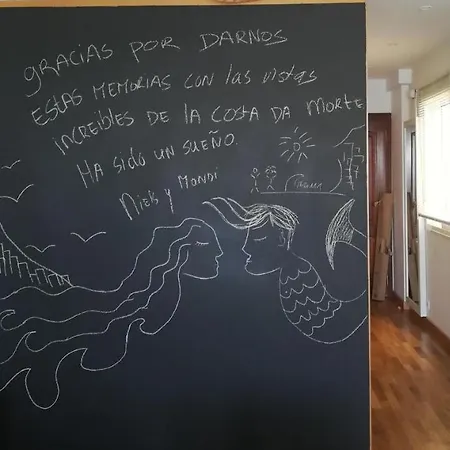 GRACIAS POR DARNOS
ESTAS MEMORIAS CON LAS VISTAS
INCREIBLES DE LA COSTA DA MORTE
HA SIDO UN SUEÑO.
Niels y Mandi